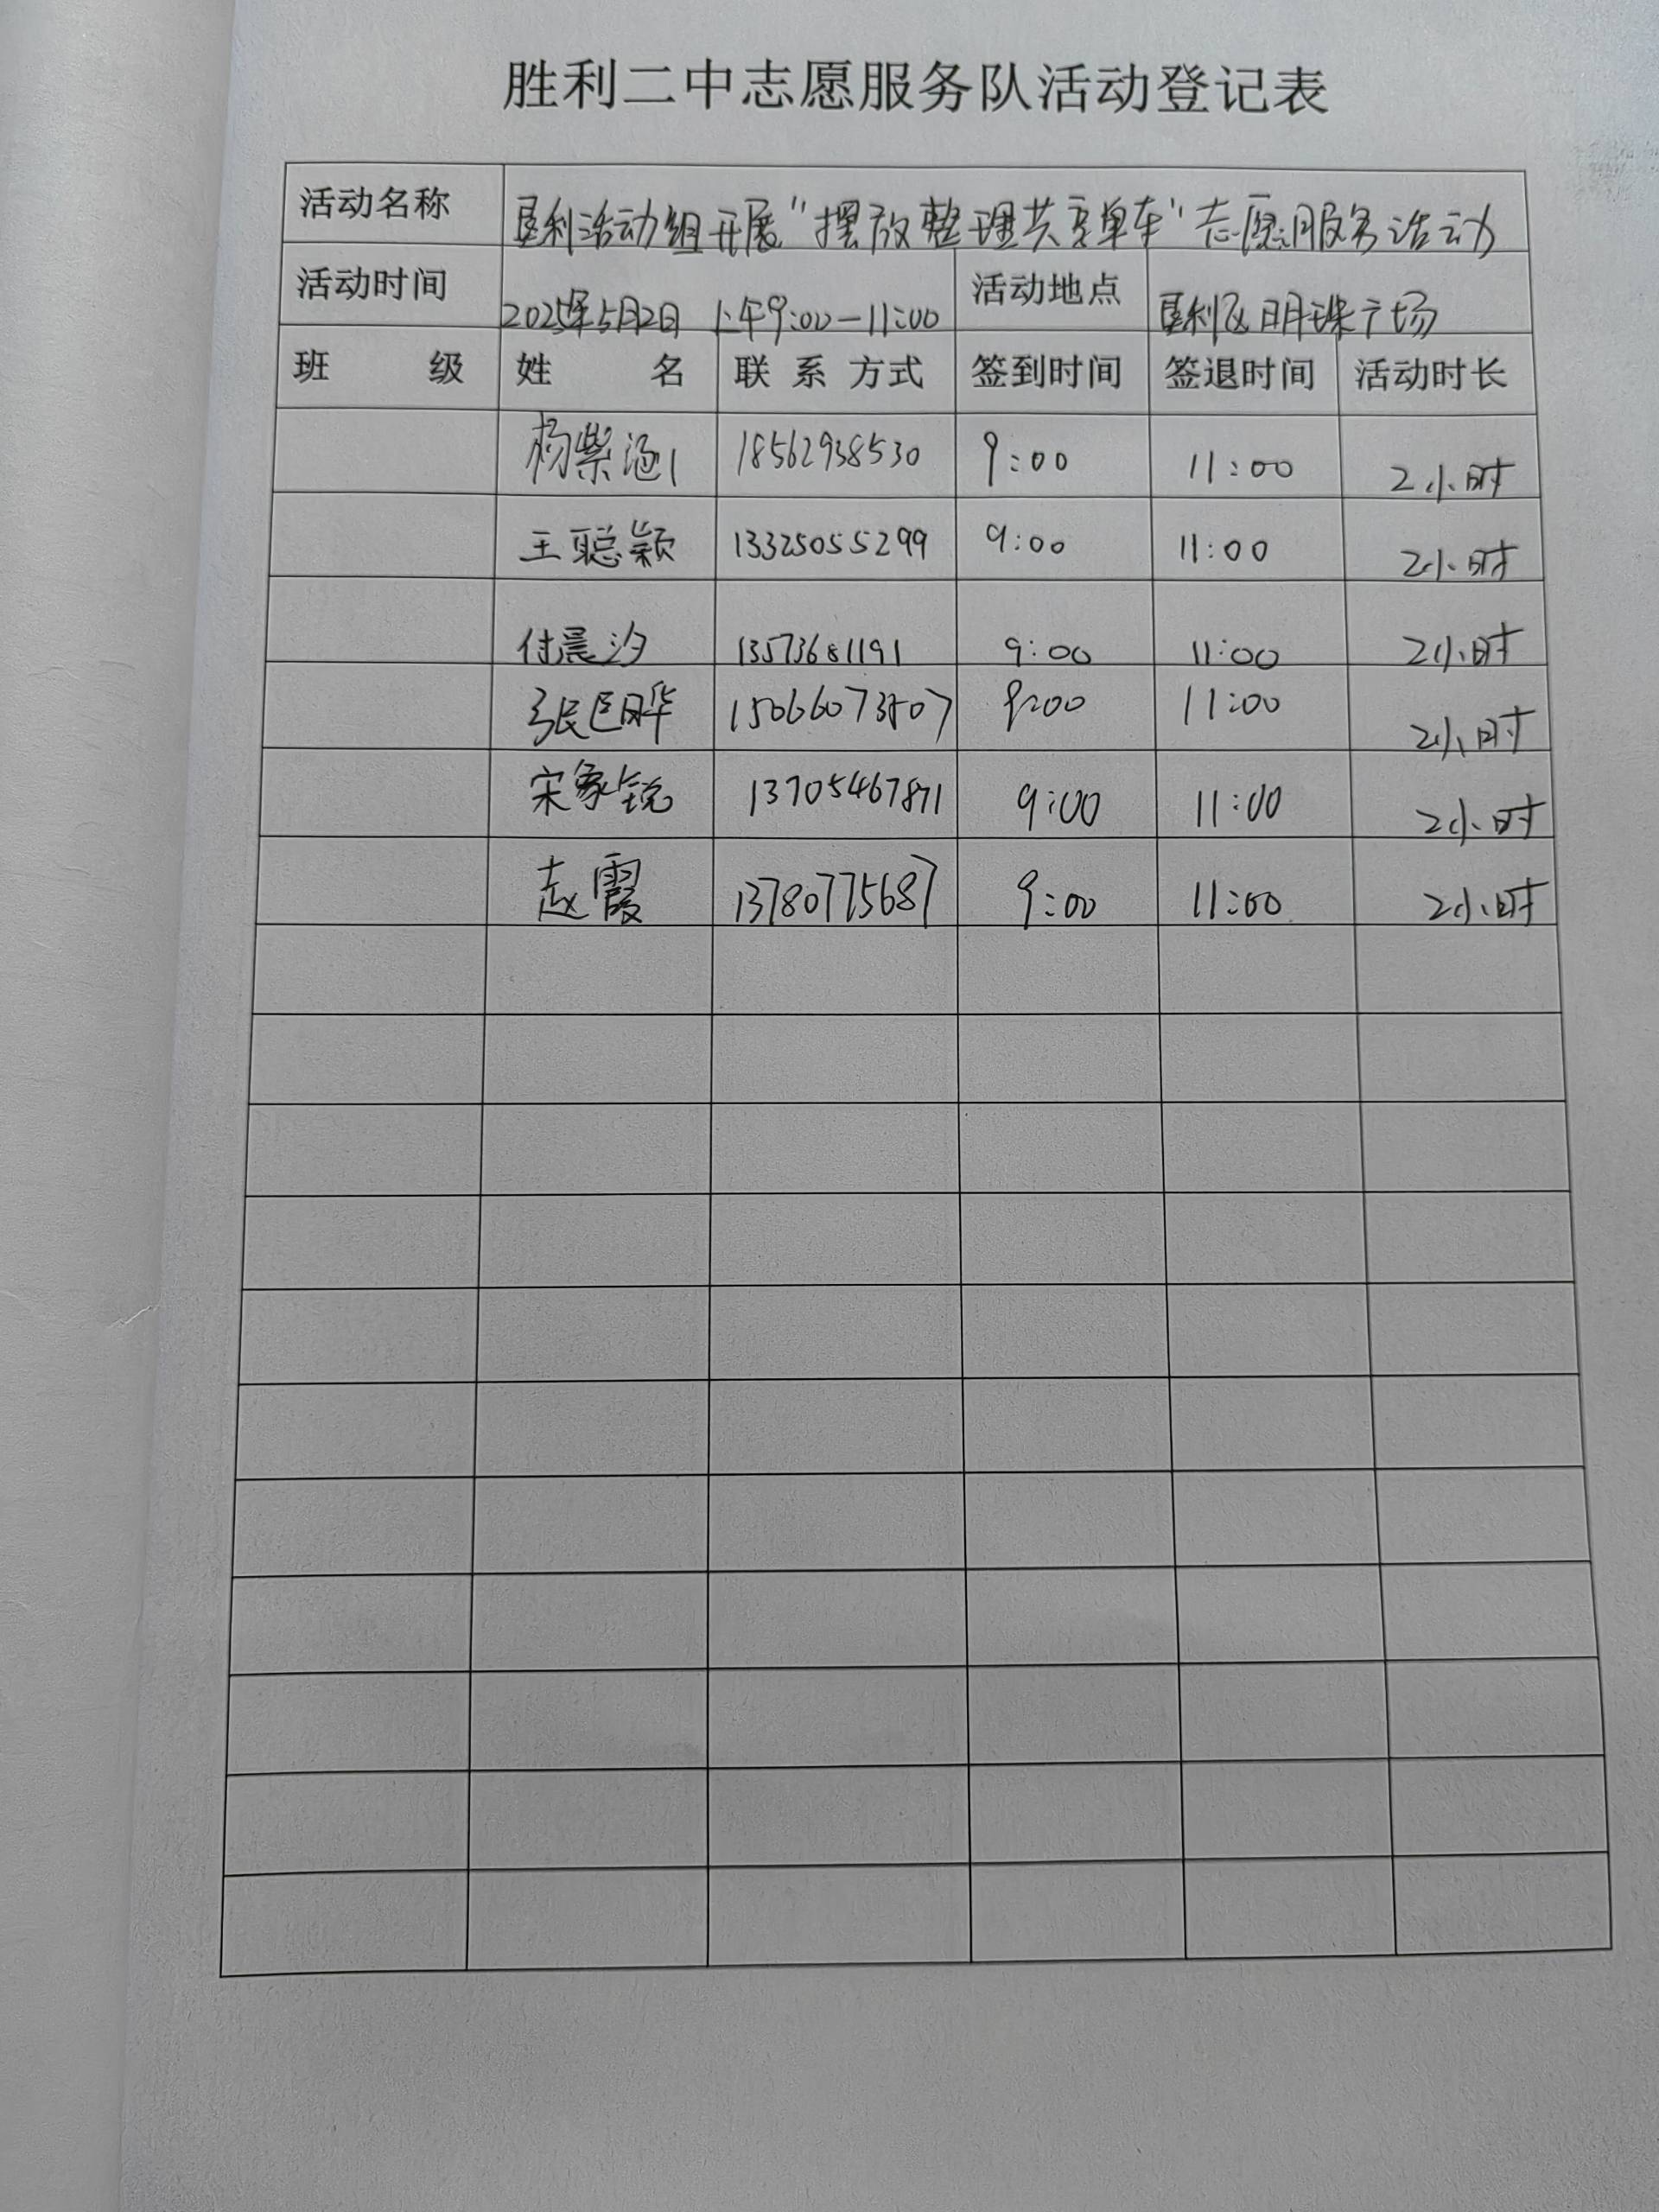 胜利二中志愿服务队活动登记表
活动名称 垦利活动组开展"摆放整理共享单车"志愿服务活动
活动时间 2025年5月2日 上午9:00-11:00 活动地点 垦利区明珠广场
班 级 姓 名 联系方式 签到时间 签退时间 活动时长
杨紫涵 18562938530 9:00 11:00 2小时
王聪颖 13325055299 9:00 11:00 2小时
付晨汐 13573681191 9:00 11:00 2小时
张 9:00 11:00 2小时
宋家锐 9:00 11:00 2小时
赵霞 13780775687 9:00 11:00 2小时